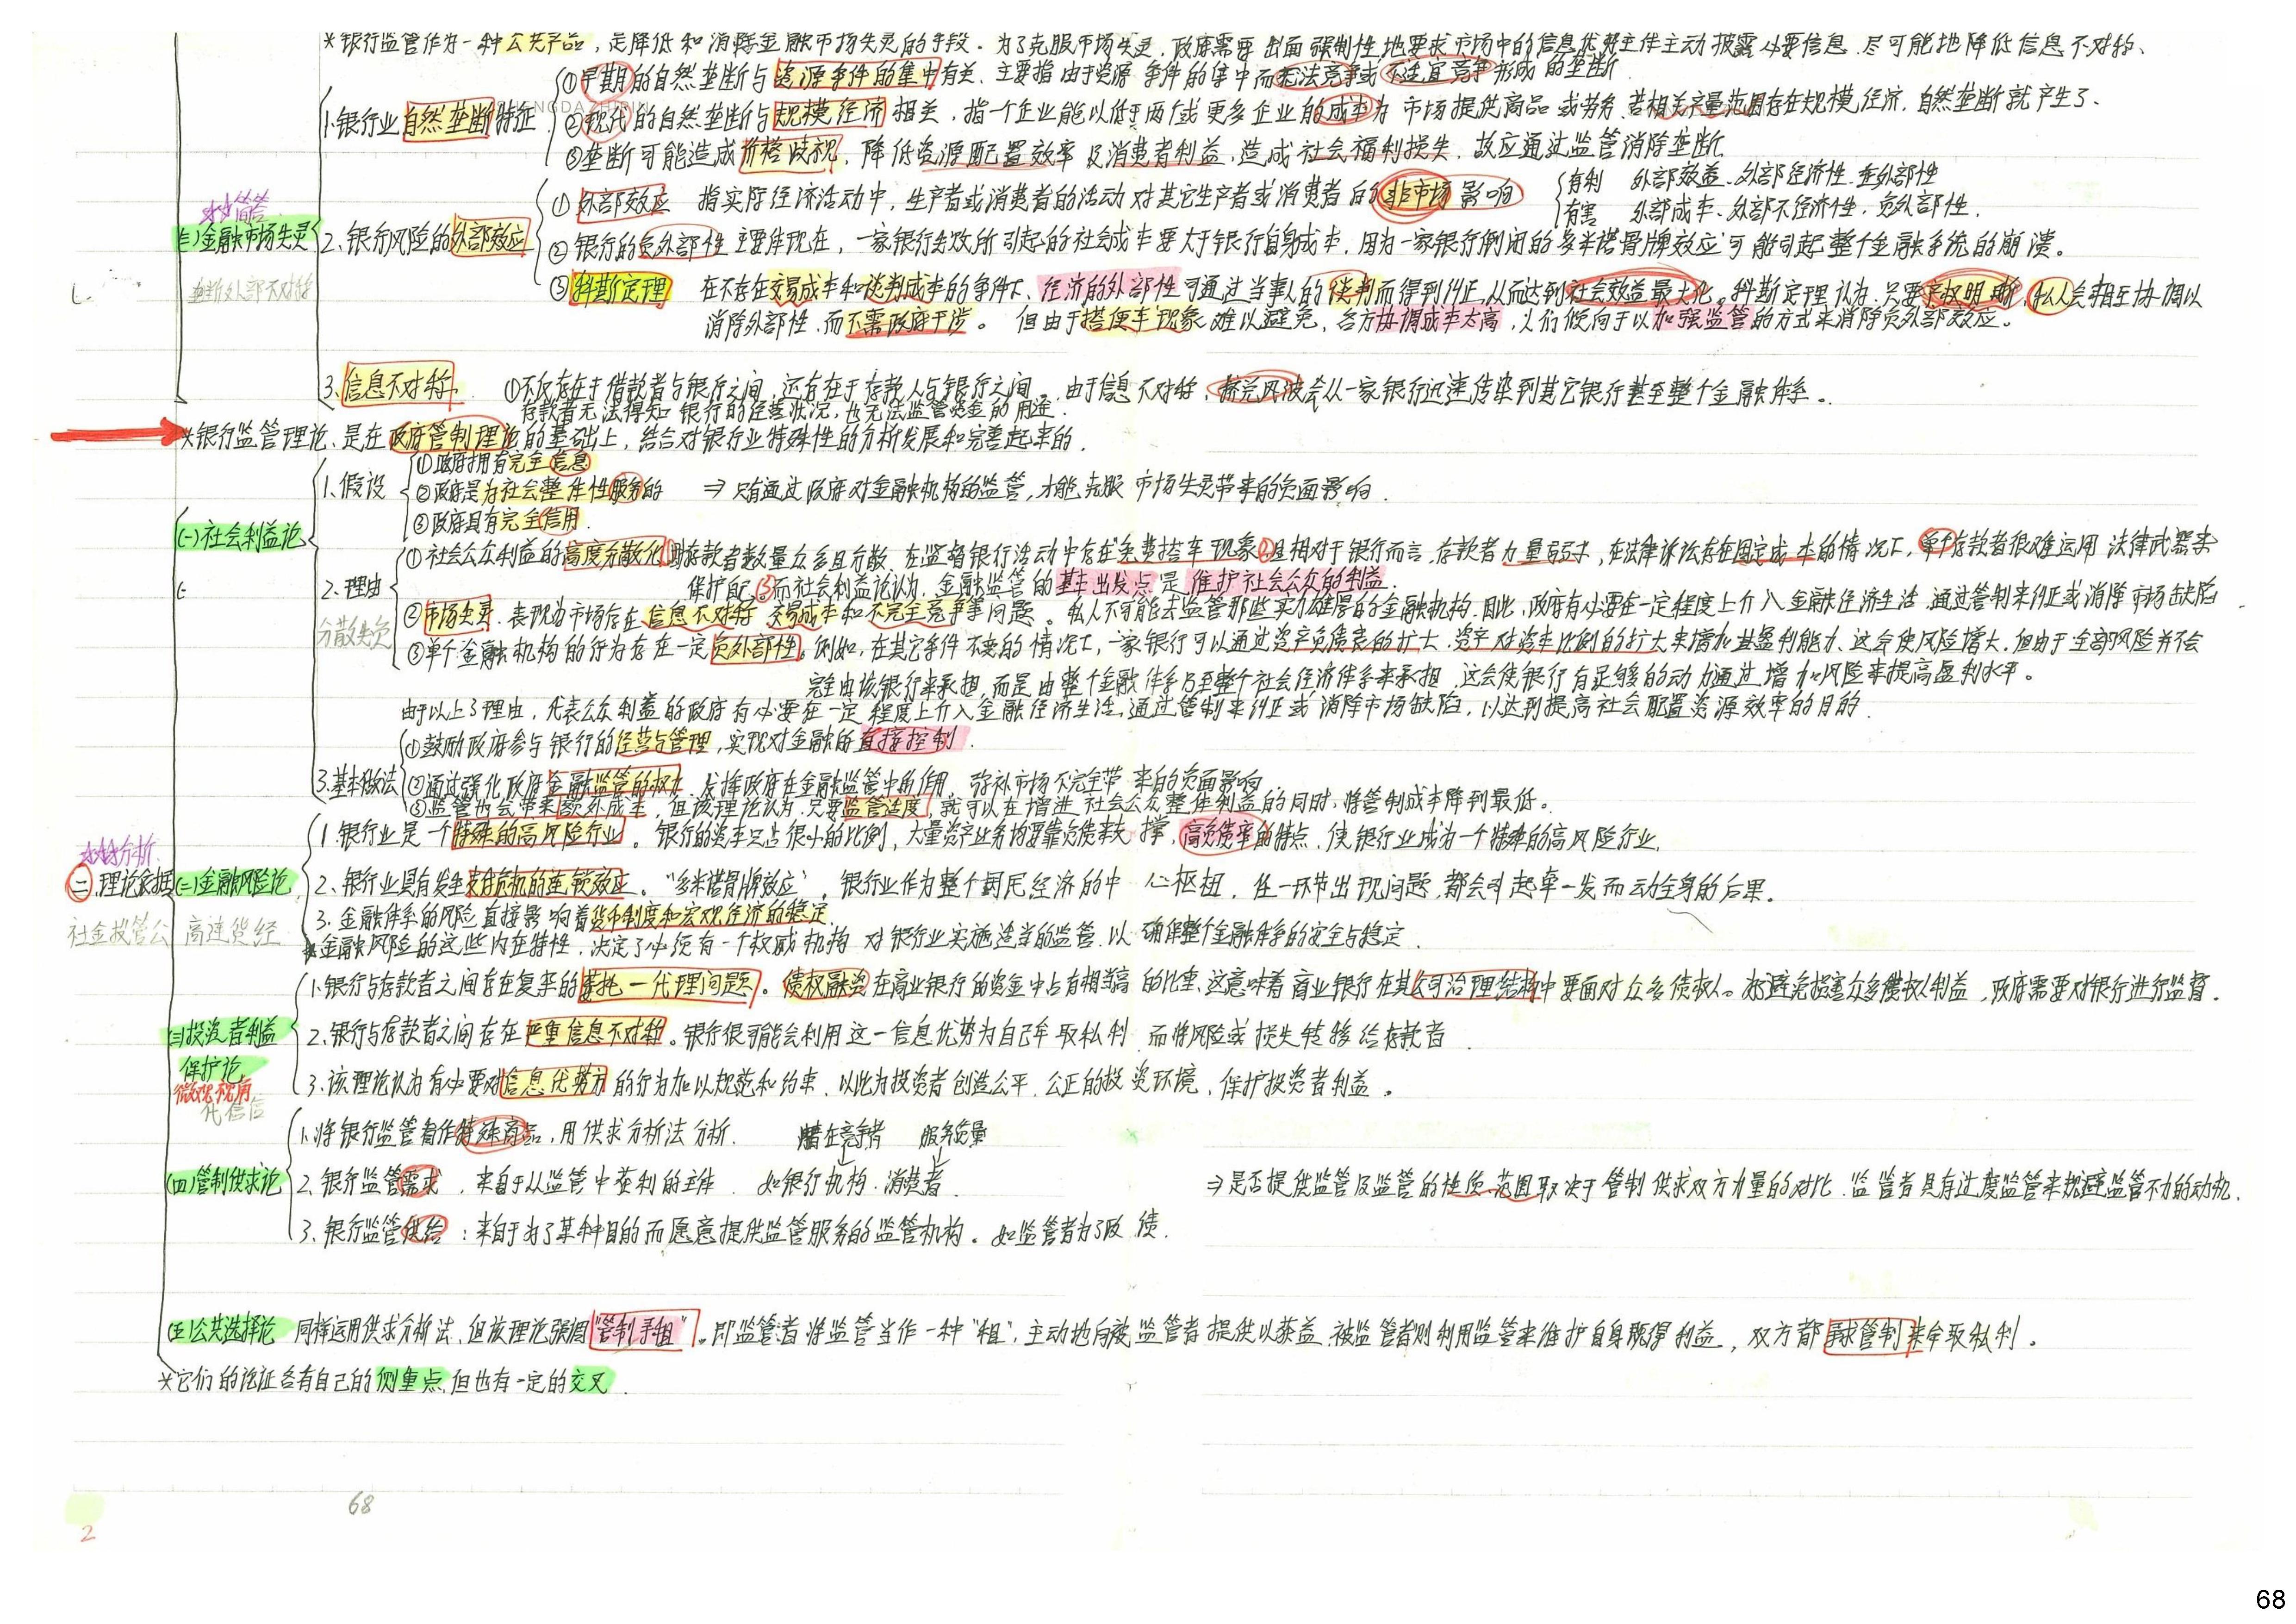 *银行监管作为一种公共产品,是降低和消除金融市场失灵的手段。为了克服市场失灵,政府需要出面强制性地要求市场中的信息优势主体主动披露必要信息,尽可能地降低信息不对称、
①早期的自然垄断与资源条件的集中有关、主要指由于资源条件的集中而无法竞争或不适宜竞争形成的垄断.
1.银行业自然垄断特征
②现代的自然垄断与规模经济相关,指一个企业能以低于两个或更多企业的成本为市场提供商品或劳务.若相关产量范围存在规模经济.自然垄断就产生了、
③垄断可能造成价格歧视,降低资源配置效率及消费者利益,造成社会福利损失.故应通过监管消除垄断.
**简答
(三)金融市场失灵
垄断外部不对称
2.银行风险的外部效应
①外部效应 指实际经济活动中,生产者或消费者的活动对其它生产者或消费者的非市场影响
有利 外部效益、外部经济性、正外部性
有害 外部成本、外部不经济性,负外部性.
②银行的负外部性主要体现在,一家银行失败所引起的社会成本要大于银行自身成本,因为一家银行倒闭的多米诺骨牌效应可能引起整个金融系统的崩溃。
③科斯定理 在不存在交易成本和谈判成本的条件下,经济的外部性可通过当事人的谈判而得到纠正,从而达到社会效益最大化。科斯定理认为,只要产权明晰,私人会相互协调以
消除外部性,而不需政府干涉。但由于搭便车现象难以避免,各方协调成本太高,人们倾向于以加强监管的方式来消除负外部效应。
3.信息不对称. ①不仅存在于借款者与银行之间,还存在于存款人与银行之间。由于信息不对称,挤兑风波会从一家银行迅速传染到其它银行甚至整个金融体系。
存款者无法得知银行的经营状况,也无法监管资金的用途.
*银行监管理论,是在政府管制理论的基础上,结合对银行业特殊性的分析发展和完善起来的.
(一)社会利益论
1.假设
①政府拥有完全信息
②政府是为社会整体性服务的 ⇒只有通过政府对金融机构的监管,才能克服市场失灵带来的负面影响.
③政府具有完全信用.
2.理由
分散失负
①社会公众利益的高度分散化,①存款者数量众多且分散,在监督银行活动中存在免费搭车现象②且相对于银行而言,存款者力量弱小,在法律诉讼存在固定成本的情况下,单个存款者很难运用法律武器来
保护自己.③而社会利益论认为,金融监管的基本出发点是维护社会公众的利益.
②市场失灵.表现为市场存在信息不对称,交易成本和不完全竞争等问题。私人不可能去监管那些实力雄厚的金融机构.因此,政府有必要在一定程度上介入金融经济生活,通过管制来纠正或消除市场缺陷.
③单个金融机构的行为存在一定负外部性。例如,在其它条件不变的情况下,一家银行可以通过资产负债表的扩大、资产对资本比例的扩大来增加其盈利能力.这会使风险增大.但由于全部风险并不会
完全由该银行来承担,而是由整个金融体系乃至整个社会经济体系来承担.这会使银行有足够的动力通过增加风险来提高盈利水平。
由于以上3理由,代表公众利益的政府有必要在一定程度上介入金融经济生活,通过管制来纠正或消除市场缺陷,以达到提高社会配置资源效率的目的.
3.基本做法
①鼓励政府参与银行的经营与管理,实现对金融的直接控制.
②通过强化政府金融监管的权力,发挥政府在金融监管中的作用,弥补市场不完全带来的负面影响
③监管也会带来额外成本,但该理论认为,只要监管适度,就可以在增进社会公众整体利益的同时,将管制成本降到最低。
**分析.
(二).理论依据
社金投管公
(二)金融风险论
高连货经
1.银行业是一个特殊的高风险行业。银行的资本只占很小的比例,大量资产业务均要靠负债来支撑,高负债率的特点,使银行业成为一个特殊的高风险行业.
2.银行业具有发生支付危机的连锁效应。“多米诺骨牌效应”,银行业作为整个国民经济的中心枢纽,任一环节出现问题,都会引起牵一发而动全身的后果。
3.金融体系的风险直接影响着货币制度和宏观经济的稳定.
*金融风险的这些内在特性,决定了必须有一个权威机构对银行业实施适当的监管.以确保整个金融体系的安全与稳定.
(三)投资者利益
保护论
微观视角
代信信
1.银行与存款者之间存在复杂的委托一代理问题。债权融资在商业银行的资金中占有相当高的比重,这意味着商业银行在其公司治理结构中要面对众多债权人。为避免损害众多债权人利益,政府需要对银行进行监督.
2.银行与存款者之间存在严重信息不对称。银行很可能会利用这一信息优势为自己牟取私利,而将风险或损失转移给存款者.
3.该理论认为有必要对信息优势方的行为加以规范和约束,以此为投资者创造公平,公正的投资环境,保护投资者利益。
(四)管制供求论
1.将银行监管看作特殊商品,用供求分析法分析.
潜在竞争者 服务质量
2.银行监管需求,来自于从监管中获利的主体.如银行机构.消费者. ⇒是否提供监管及监管的性质、范围取决于管制供求双方力量的对比.监管者具有过度监管来规避监管不力的动机.
3.银行监管供给:来自于为了某种目的而愿意提供监管服务的监管机构。如监管者为了政绩.
(五)公共选择论 同样运用供求分析法,但该理论强调“管制寻租”。即监管者将监管当作一种“租”,主动地向被监管者提供以获益.被监管者则利用监管来维护自身既得利益,双方都寻求管制来牟取私利。
*它们的论证各有自己的侧重点,但也有一定的交叉.
68
2
68